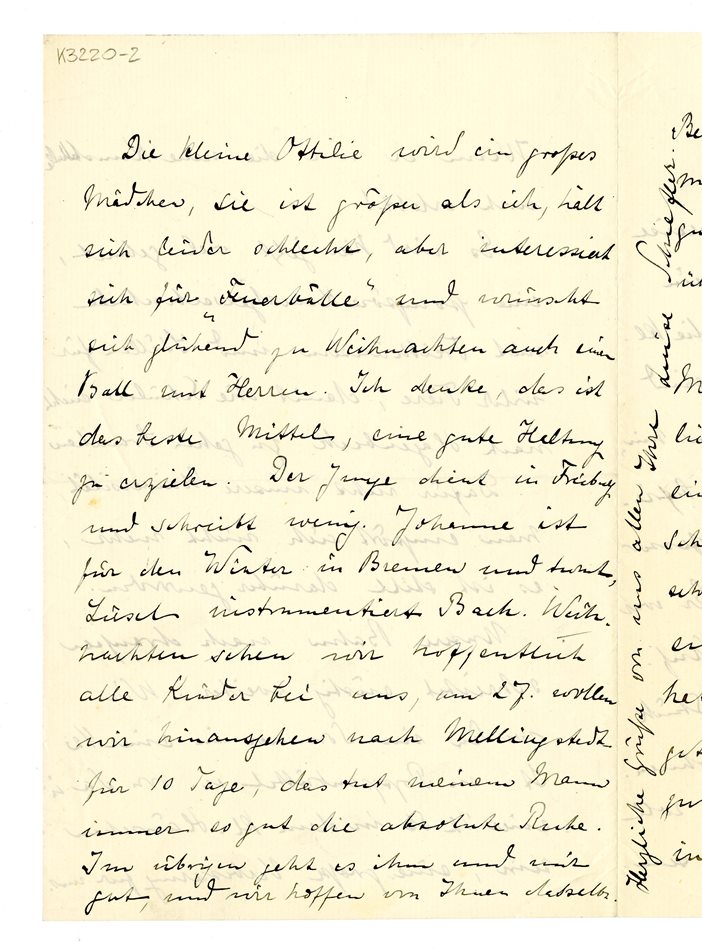 K3220-2
Die kleine Ottilie wird ein großes
Mädchen, sie ist größer als ich, hält
sich leider schlecht, aber interessiert
sich für „Feuerbälle“ und wünscht
sich glühend zu Weihnachten auch einen
Ball mit Herren. Ich denke, das ist
das beste Mittel, eine gute Haltung
zu erzielen. Der Junge dient in Freiburg
und schreibt wenig. Johanne ist
für den Winter in Bremen und turnt,
Lüsel instrumentiert Bach. Weih-
nachten sehen wir hoffentlich
alle Kinder bei uns, am 27. wollen
wir hinausgehen nach Mellingstedt
für 10 Tage, das tut meinem Mann
immer so gut die absolute Ruhe.
Im übrigen geht es ihm und mir
gut, und wir hoffen von Ihnen dasselbe.
Herzliche Grüße von uns allen Ihre Luise Schiefler.